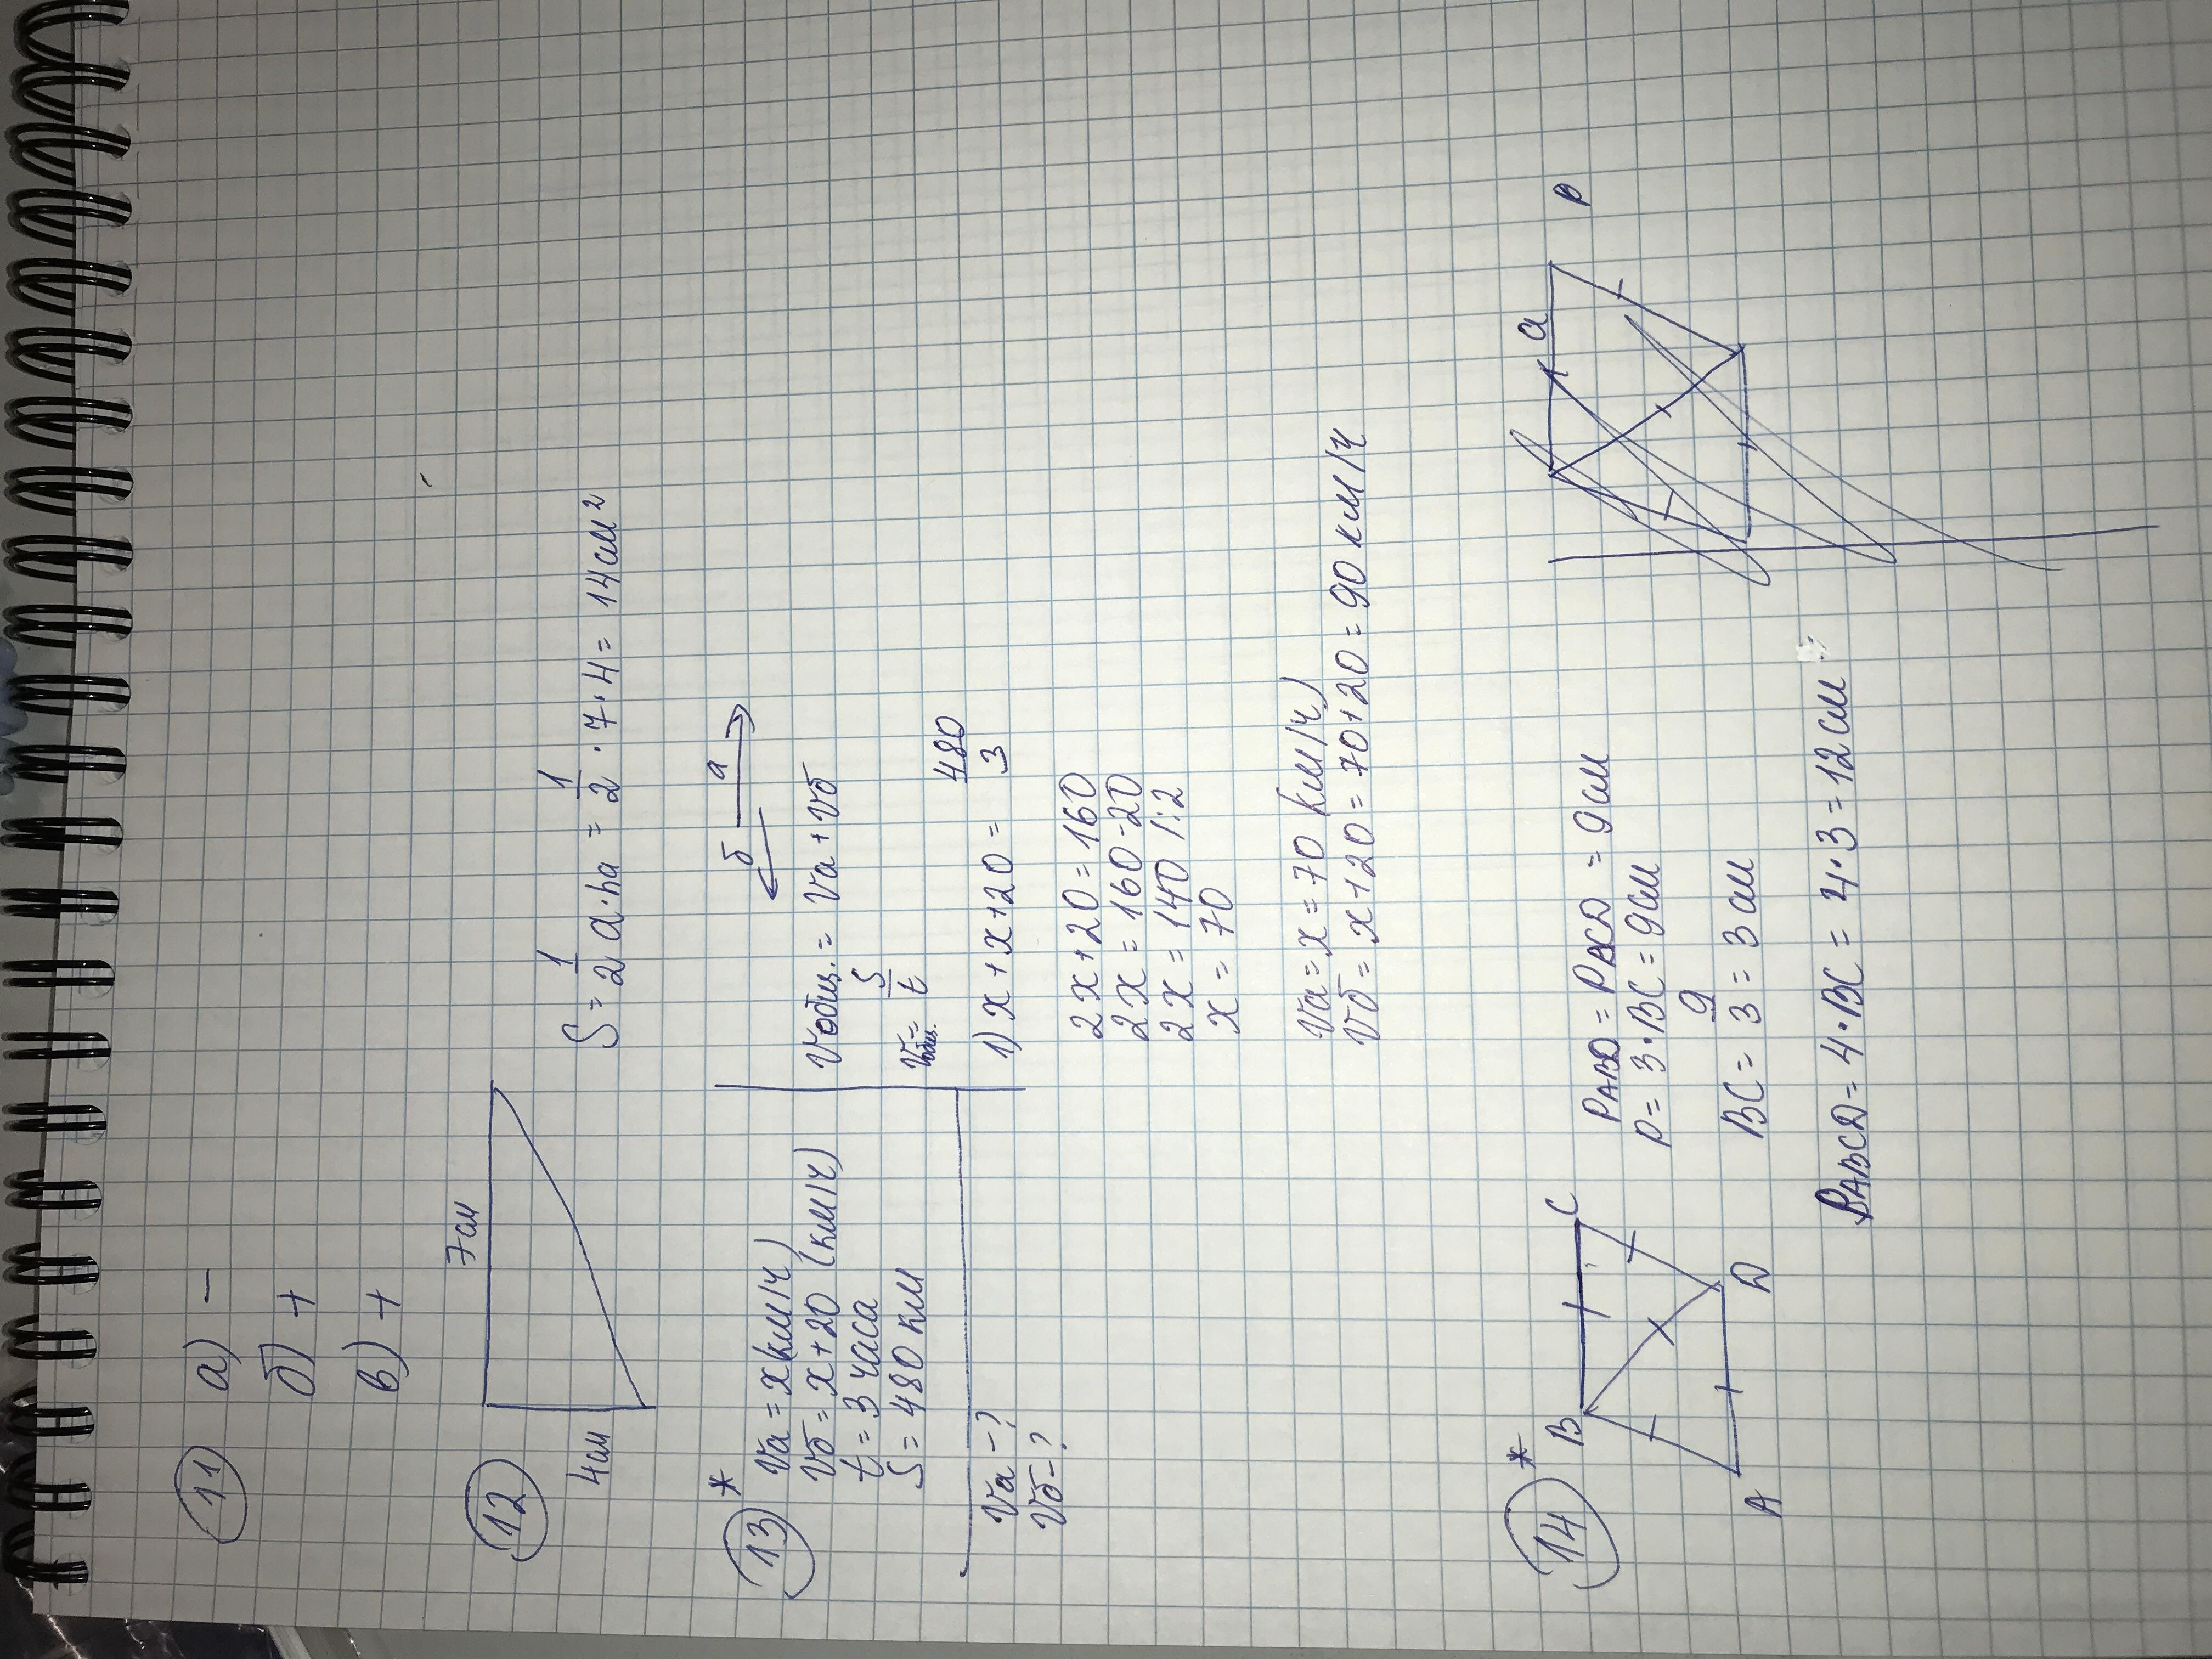 11 а) –
б) +
в) +
12
7см
4см
S = 1/2 a·ha = 1/2 · 7 · 4 = 14см²
13*
Vа = x(км/ч)
Vб = x+20 (км/ч)
t = 3 часа
S = 480 км
Vа – ?
Vб – ?
б а
Vобщ. = Vа + Vб
Vобщ. = S/t
1) x + x + 20 = 480/3
2x + 20 = 160
2x = 160 - 20
2x = 140 |:2
x = 70
Vа = x = 70 км/ч)
Vб = x + 20 = 70 + 20 = 90 км/ч
14*
B C
A D
PABD = PBCD = 9см
P = 3·BC = 9см
BC = 9/3 = 3см
PABCD = 4·BC = 4·3 = 12см
a